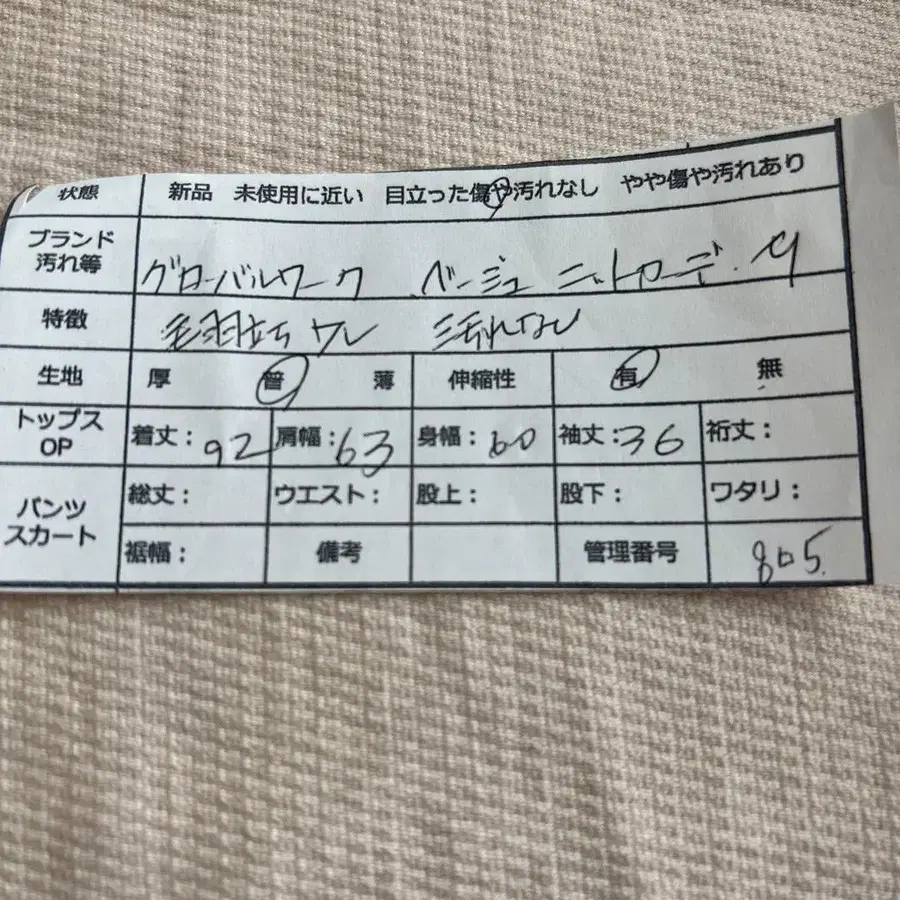 状態 新品 未使用に近い 目立った傷や汚れなし やや傷や汚れあり
ブランド
汚れ等
グローバルワーク ベージュ ニットカーデ.
特徴 毛羽立ち 汚れなし
生地 厚 普 薄 伸縮性 有 無
トップス
OP
着丈：92 肩幅：63 身幅：60 袖丈：36 裄丈：
パンツ
スカート
総丈： ウエスト： 股上： 股下： ワタリ：
裾幅： 備考 管理番号 805.